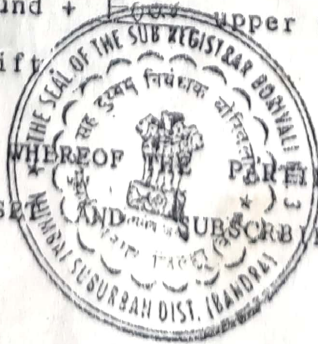 und + upper
ift
THE SEAL OF THE SUB REGISTRAR BORIVALI
सह दुय्यम निबंधक
WHEREOF THE
AND SUBSCRB
MUMBAI SUBURBAN DIST. (BANDRA)